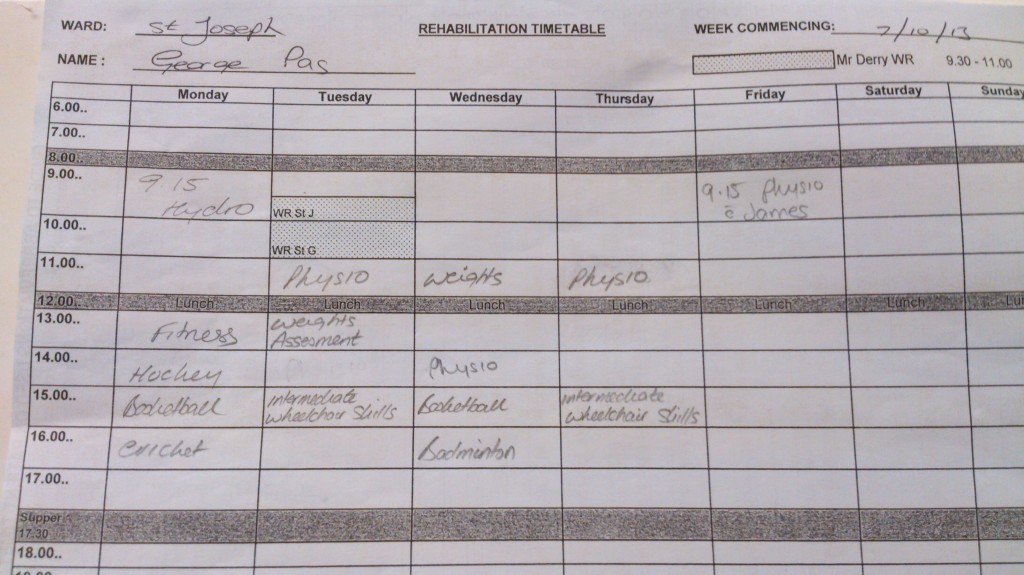 WARD: St Joseph REHABILITATION TIMETABLE WEEK COMMENCING: 7/10/13
NAME: George Pas Mr Derry WR 9.30 - 11.00
Monday Tuesday Wednesday Thursday Friday Saturday Sunday
6.00..
7.00..
8.00..
9.00.. 9.15 9.15 Physio
Hydro WR St J c̄ James
10.00..
WR St G
11.00.. Physio Weights Physio
12.00.. Lunch Lunch Lunch Lunch Lunch Lunch Lu
13.00.. Fitness Weights
Assesment
14.00.. Hockey Physio
15.00.. Basketball intermediate Basketball intermediate
wheelchair skills wheelchair skills
16.00.. Cricket Badminton
17.00..
Supper
17.30
18.00..